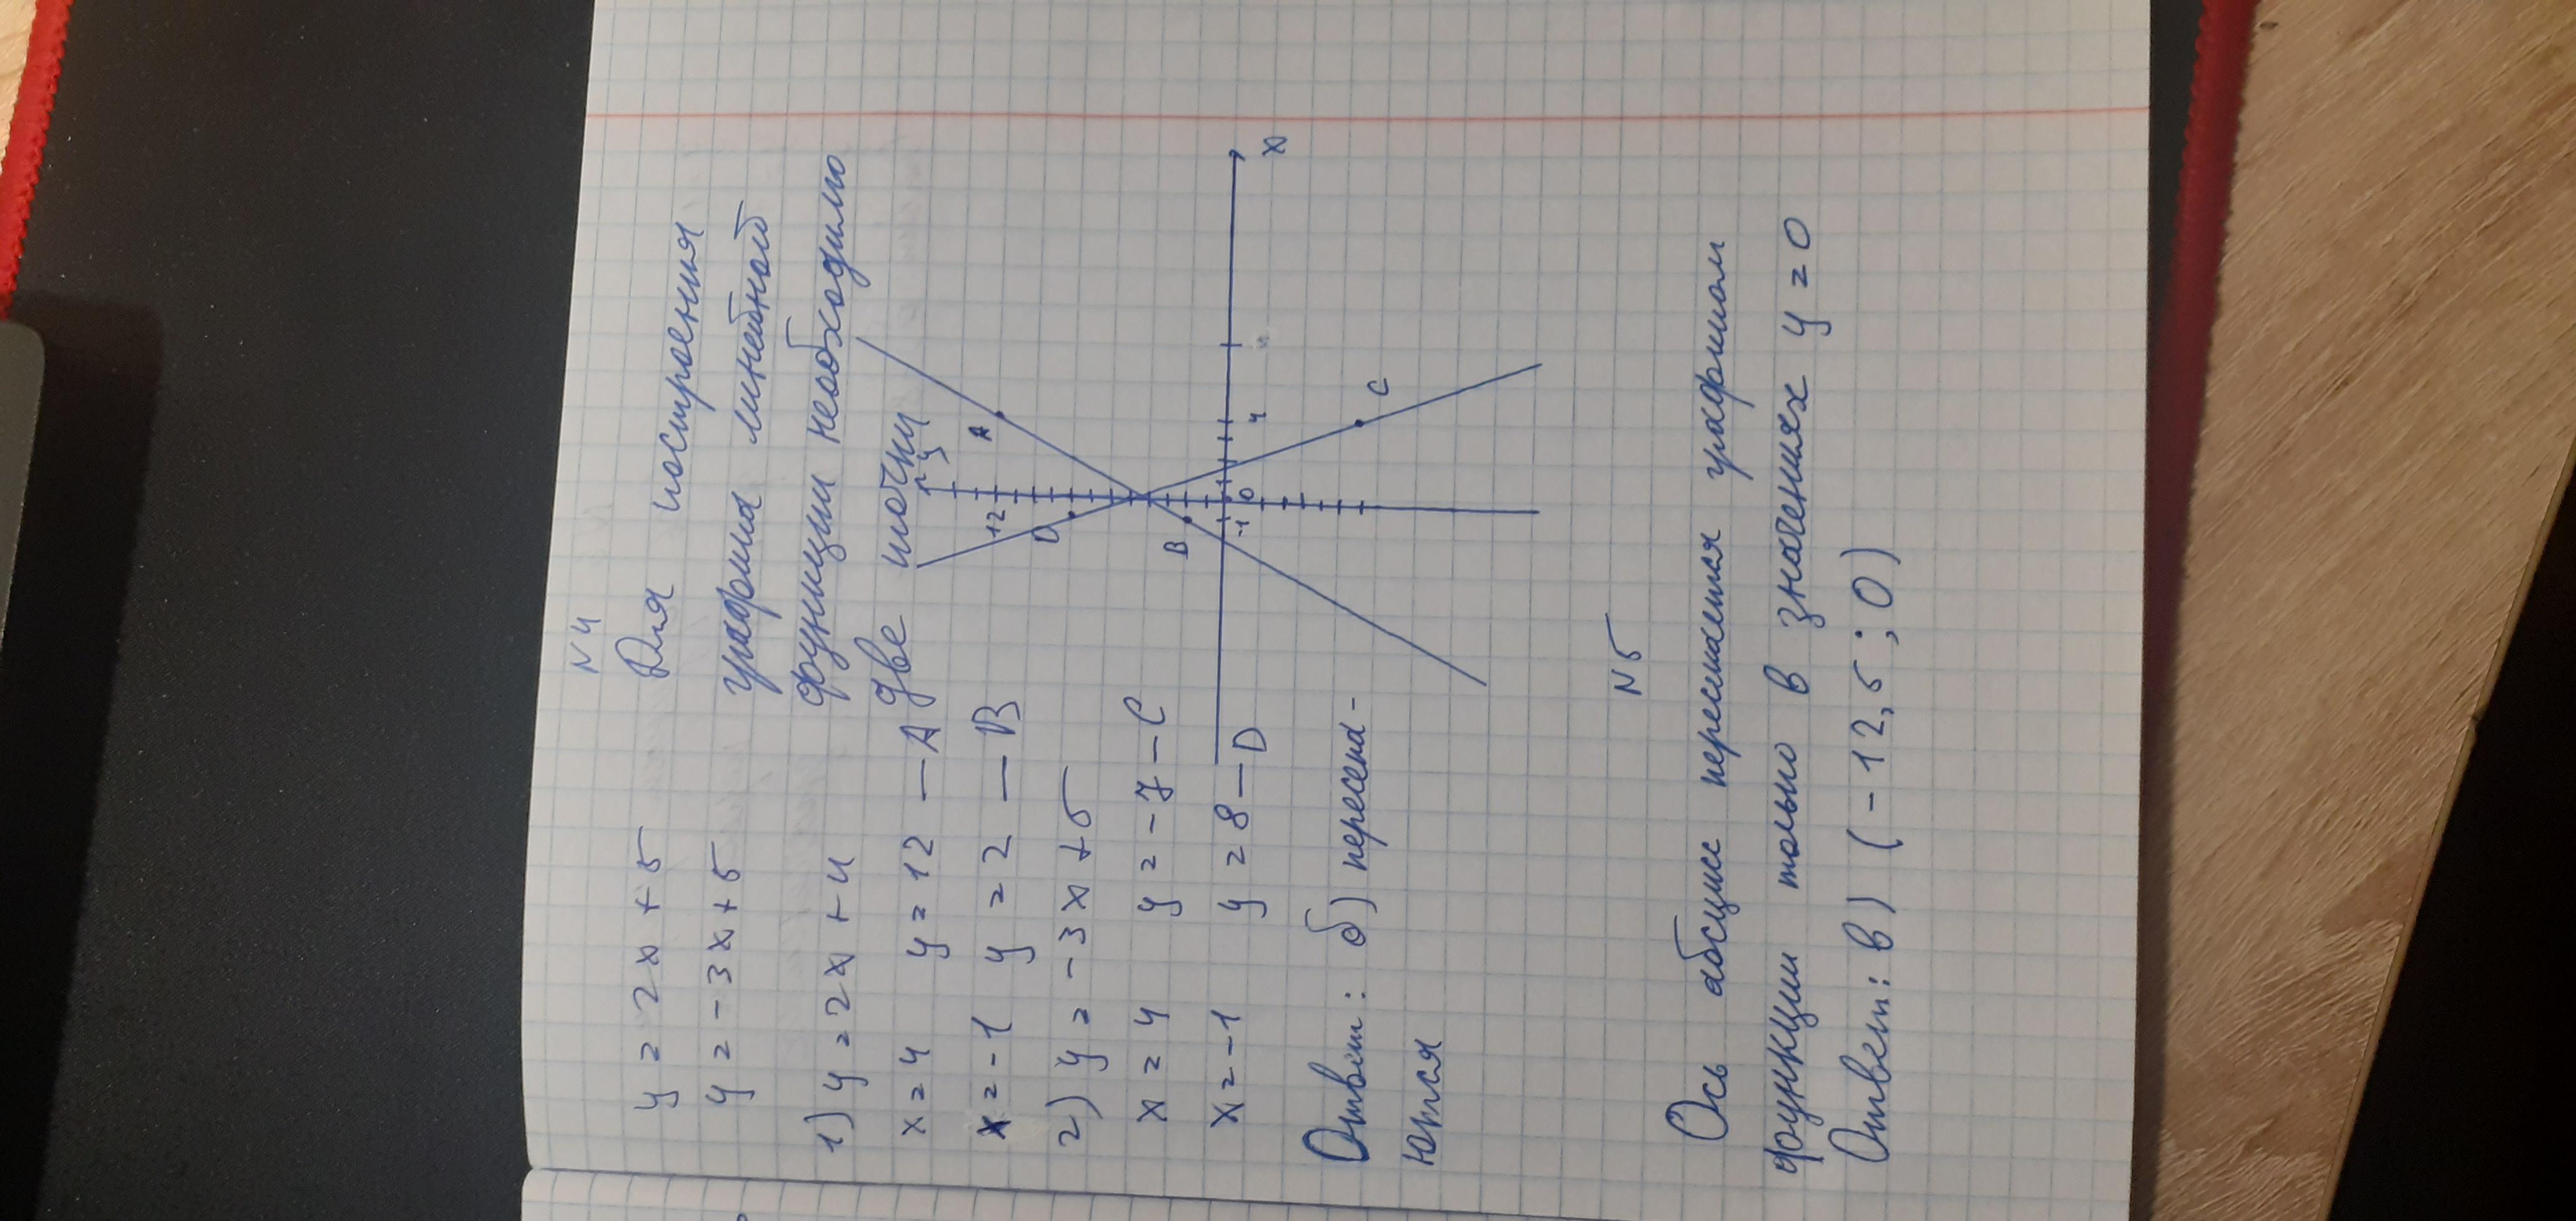 N4
y = 2x + 5
y = -3x + 5
1) y = 2x + 4
x = 4 y = 12 — A
x = -1 y = 2 — B
2) y = -3x + 5
x = 4 y = -7 — C
x = -1 y = 8 — D
Ответ: б) пересека-
ются
Для построения
графика линейной
функции необходимо
две точки
y
A
12
D
B
-1
0
4
C
x
N5
Ось абсцисс пересекается графиком
функции только в значениях y = 0
Ответ: в) (-12,5; 0)